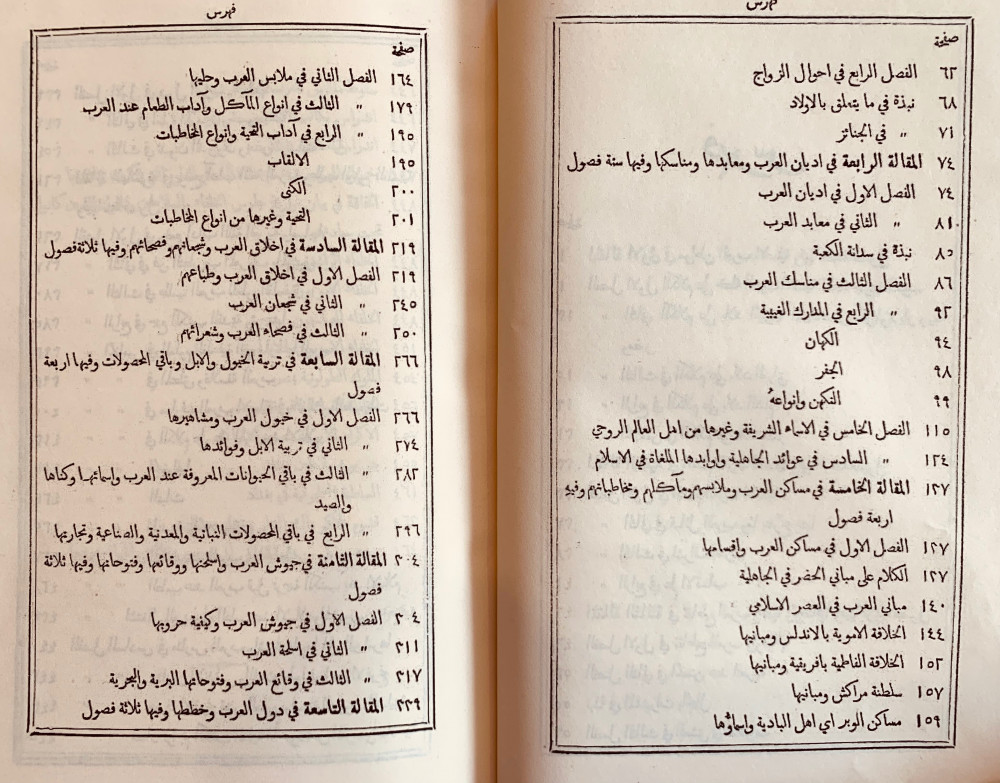 فهرس
صفحة
٦٢ الفصل الرابع في احوال الزواج
٦٨ نبذة في ما يتعلق بالاولاد
٧١ " في الجنائز
٧٤ المقالة الرابعة في اديان العرب ومعابدها ومناسكها وفيها ستة فصول
٧٤ الفصل الاول في اديان العرب
٨١ " الثاني في معابد العرب
٨٥ نبذة في سدانة الكعبة
٨٦ الفصل الثالث في مناسك العرب
٩٢ " الرابع في المدارك الغيبية
٩٤ الكهان
٩٨ الجفر
٩٩ التكهن وانواعهُ
١١٥ الفصل الخامس في الاسماء الشريفة وغيرها من اهل العالم الروحي
١٢٤ " السادس في عوائد الجاهلية واوابدها الملغاة في الاسلام
١٢٧ المقالة الخامسة في مساكن العرب وملابسهم ومآكلهم ومخاطباتهم وفيه
اربعة فصول
١٢٧ الفصل الاول في مساكن العرب واقسامها
١٢٧ الكلام على مباني الحضر في الجاهلية
١٤٠ مباني العرب في العصر الاسلامي
١٤٤ الخلافة الاموية بالاندلس ومبانيها
١٥٢ الخلافة الفاطمية بافريقية ومبانيها
١٥٧ سلطنة مراكش ومبانيها
١٥٩ مساكن الوبر اي اهل البادية واسماؤها
فهرس
صفحة
١٦٤ الفصل الثاني في ملابس العرب وحليها
١٧٩ " الثالث في انواع المآكل وآداب الطعام عند العرب
١٩٥ " الرابع في آداب التحية وانواع المخاطبات
١٩٥ الالقاب
٢٠٠ الكنى
٢٠١ التحية وغيرها من انواع المخاطبات
٢١٩ المقالة السادسة في اخلاق العرب وشجعانهم وفصحائهم وفيها ثلاثة فصول
٢١٩ الفصل الاول في اخلاق العرب وطباعهم
٢٤٥ " الثاني في شجعان العرب
٢٥٠ " الثالث في فصحاء العرب وشعرائهم
٢٦٦ المقالة السابعة في تربية الخيول والابل وباقي المحصولات وفيها اربعة
فصول
٢٦٦ الفصل الاول في خيول العرب ومشاهيرها
٢٧٤ " الثاني في تربية الابل وفوائدها
٢٨٢ " الثالث في باقي الحيوانات المعروفة عند العرب واسمائها وكناها
والصيد
٢٩٦ " الرابع في باقي المحصولات النباتية والمعدنية والصناعية وتجاريها
٣٠٤ المقالة الثامنة في جيوش العرب واسلحتها ووقائعها وفتوحاتها وفيها ثلاثة
فصول
٣٠٤ الفصل الاول في جيوش العرب وكيفية حروبها
٣١١ " الثاني في اسلحة العرب
٣١٧ " الثالث في وقائع العرب وفتوحاتها البرية والبحرية
٣٣٩ المقالة التاسعة في دول العرب وخططها وفيها ثلاثة فصول